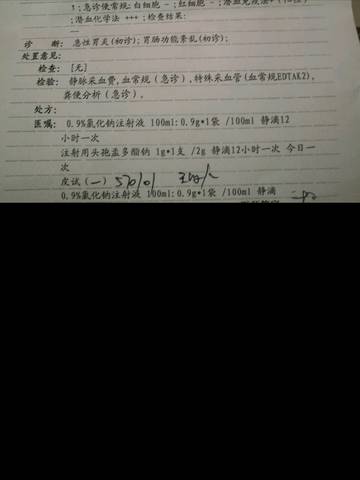 1；急诊便常规：白细胞 -；红细胞 -；潜血免疫法+
；潜血化学法 +++；检查结果：
诊 断： 急性胃炎(初诊)；胃肠功能紊乱(初诊)；
处置意见：
检查： [无]
检验： 静脉采血费，血常规（急诊），特殊采血管(血常规EDTAK2)，
粪便分析（急诊）。
处方：
医嘱： 0.9%氯化钠注射液 100ml:0.9g*1袋 /100ml 静滴12
小时一次
注射用头孢孟多酯钠 1g*1支 /2g 静滴12小时一次 今日一
次
皮试(一)
0.9%氯化钠注射液 100ml:0.9g*1袋 /100ml 静滴